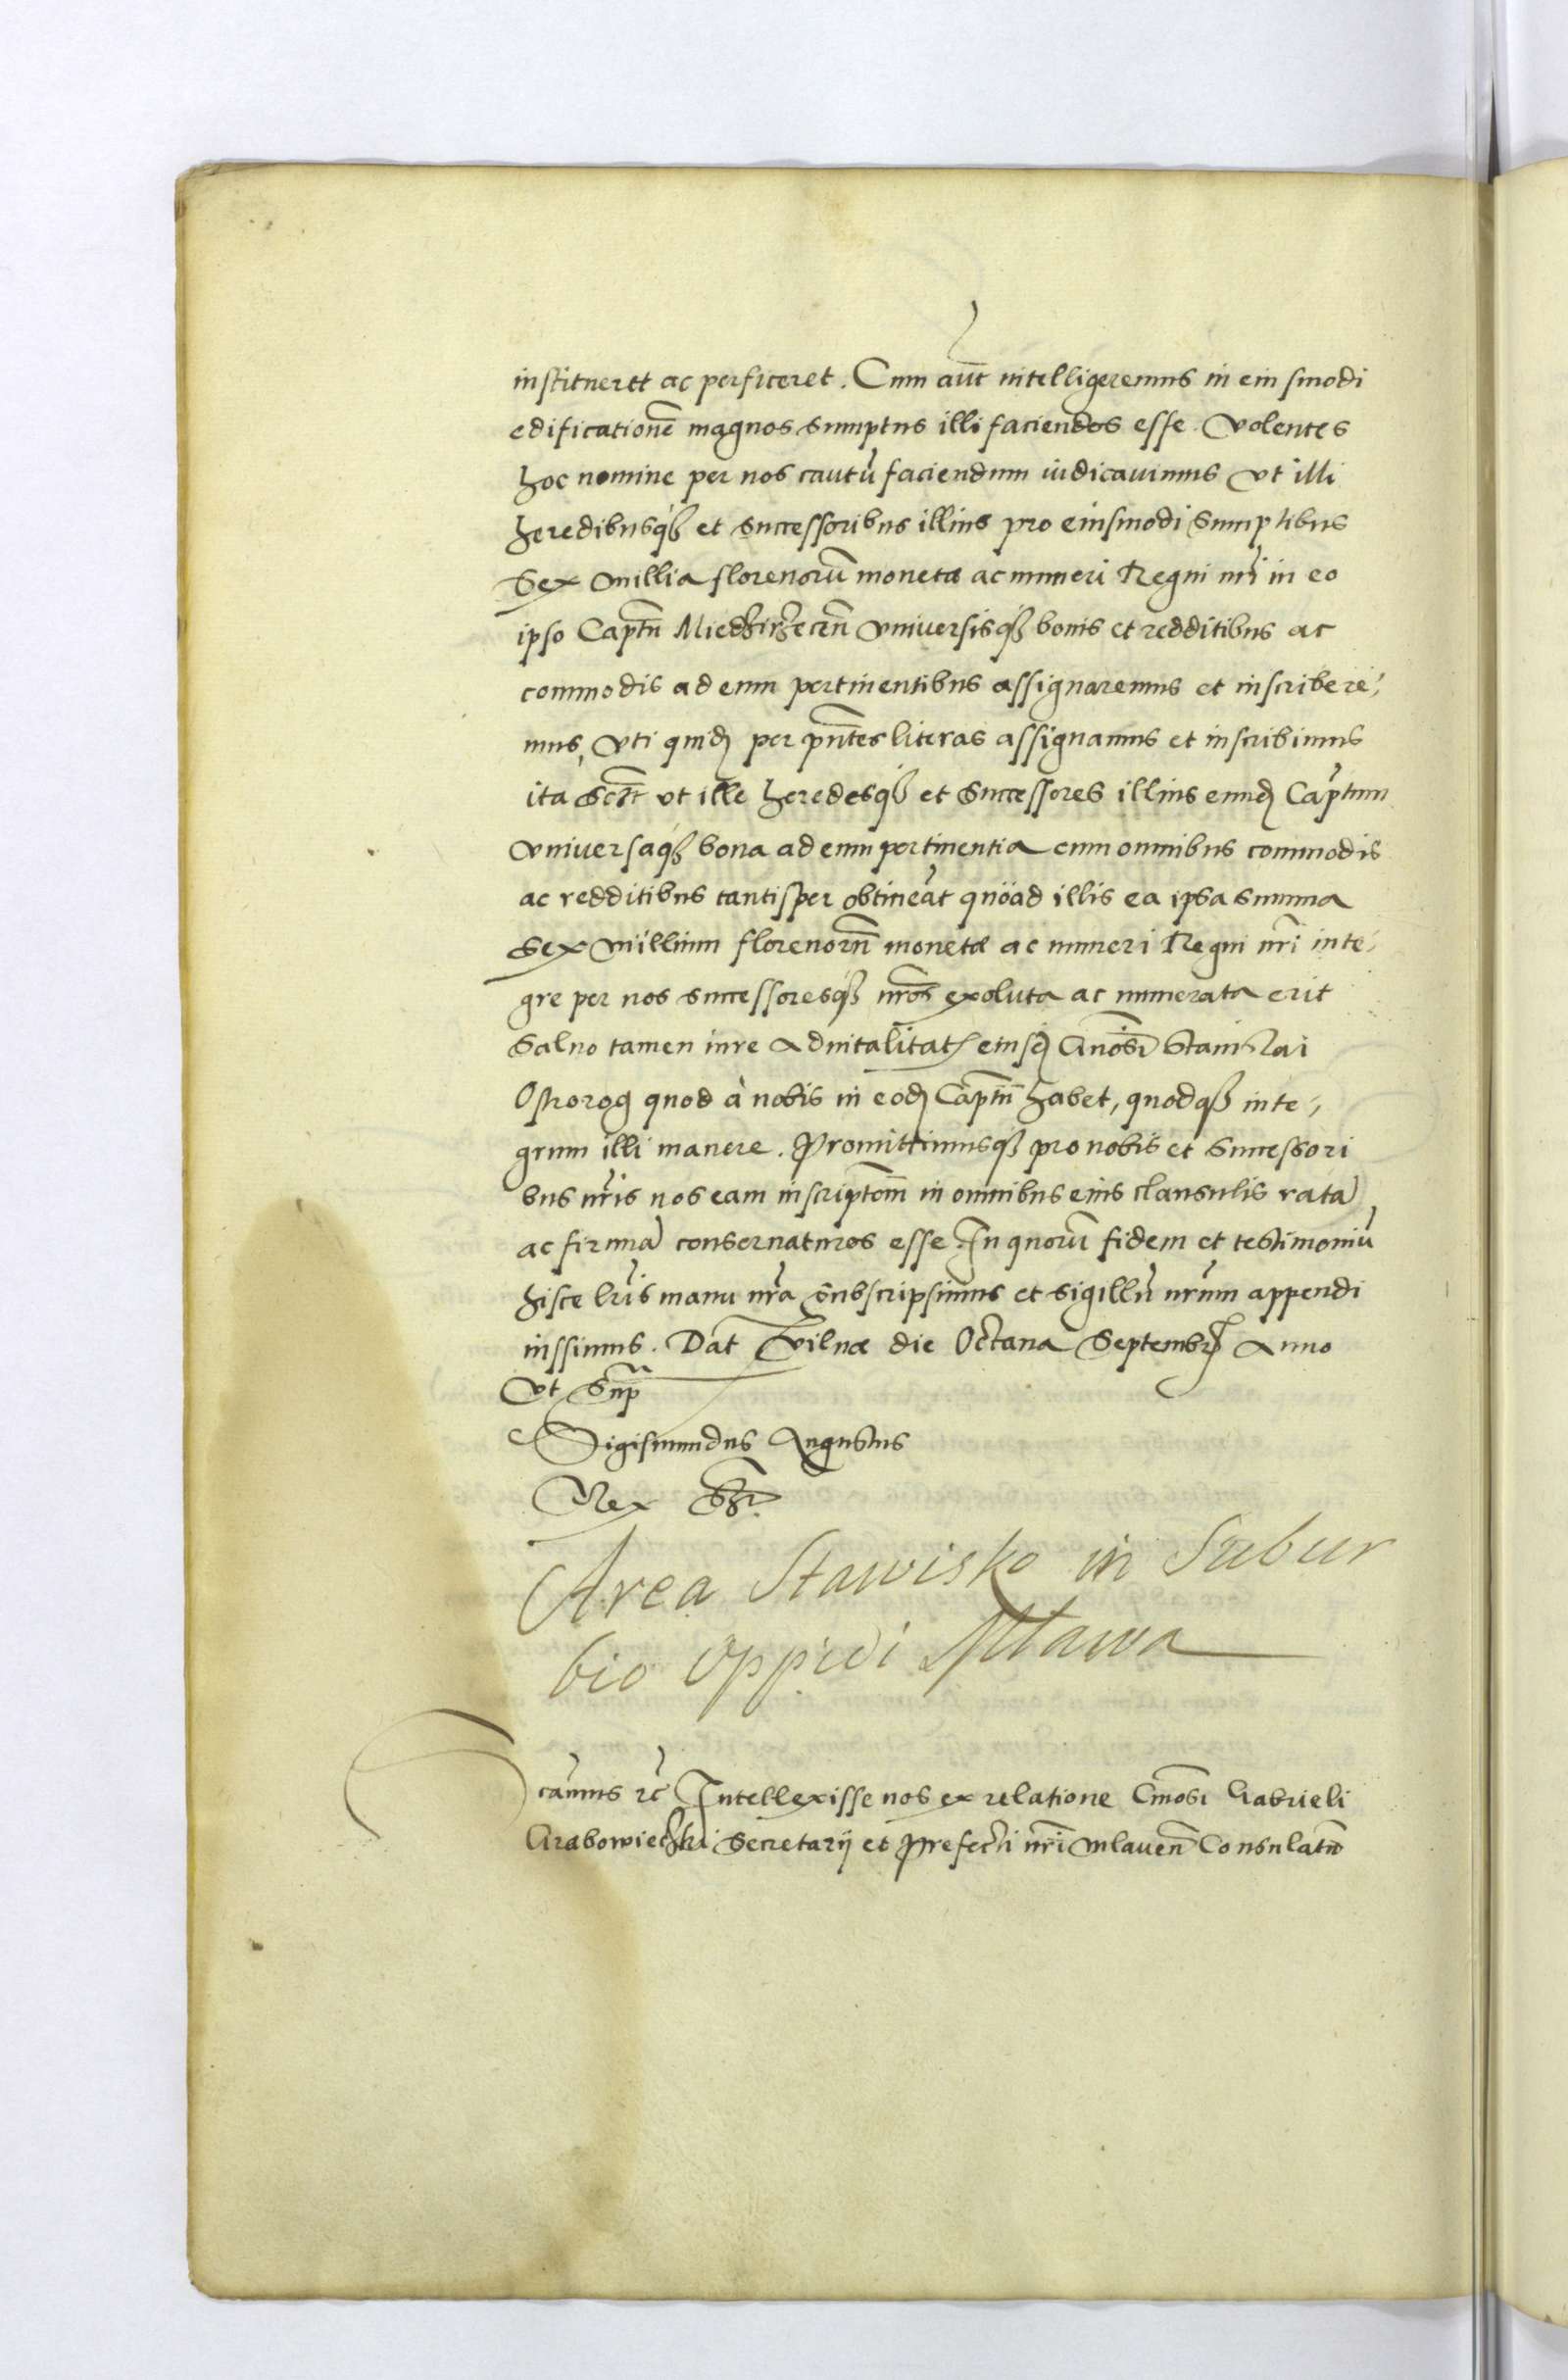 institueret ac perficeret. Cum aut̃ intelligeremus in eiusmodi
edificationẽ magnos sumptus illi faciendos esse. Volentes
hoc nomine per nos cautũ faciendum iudicauimus vt illi
heredibusq̃ et successoribus illius pro eiusmodi Sumptibus
Sex millia florenorũ monetæ ac numeri Regni nr̃i in eo
ipso Captũ Miedzirzecẽn vniuersisq̃ bonis et redditibus ac
commodis ad eum pertinentibus assignaremus et inscribere,
mus, vti quidẽ per pñtes literas assignamus et inscribimus
ita vt ille heredesq̃ et Successores illius eundẽ Captum
vniuersaq̃ bona ad eum pertinentia cum omnibus commodis
ac redditibus tantisper obtineãt quoad illis ea ipsa summa
Sex millium florenorũ monetæ ac numeri Regni nr̃i inte,
gre per nos successoresq̃ nr̃os exoluta ac numerata erit
Saluo tamen iure aduitalitatis eiusdẽ Gñosi Stanislai
Ostrorog quod à nobis in eodẽ Captũ habet, quodq̃ inte,
grum illi manere. Promittimusq̃ pro nobis et Successori
bus nr̃is nos eam inscriptõm in omnibus eius clausulis ratã
ac firmã conseruaturos esse. In quorũ fidem et testimoniũ
hisce lr̃is manu nr̃a subscripsimus et sigillũ nr̃um appendi
iussimus. Dat̃ Vilnæ die Octaua Septembr̃ Anno
Vt Supr̃
Sigismundus Augustus
Rex
Area Stawisko in Subur
bio oppidi Mlawa
cam̃us Intellexisse nos ex relatione Gñosi Gabrieli
Grabowieczki Secretarij et Prefecti nr̃i mlauen̄ Consulatũ